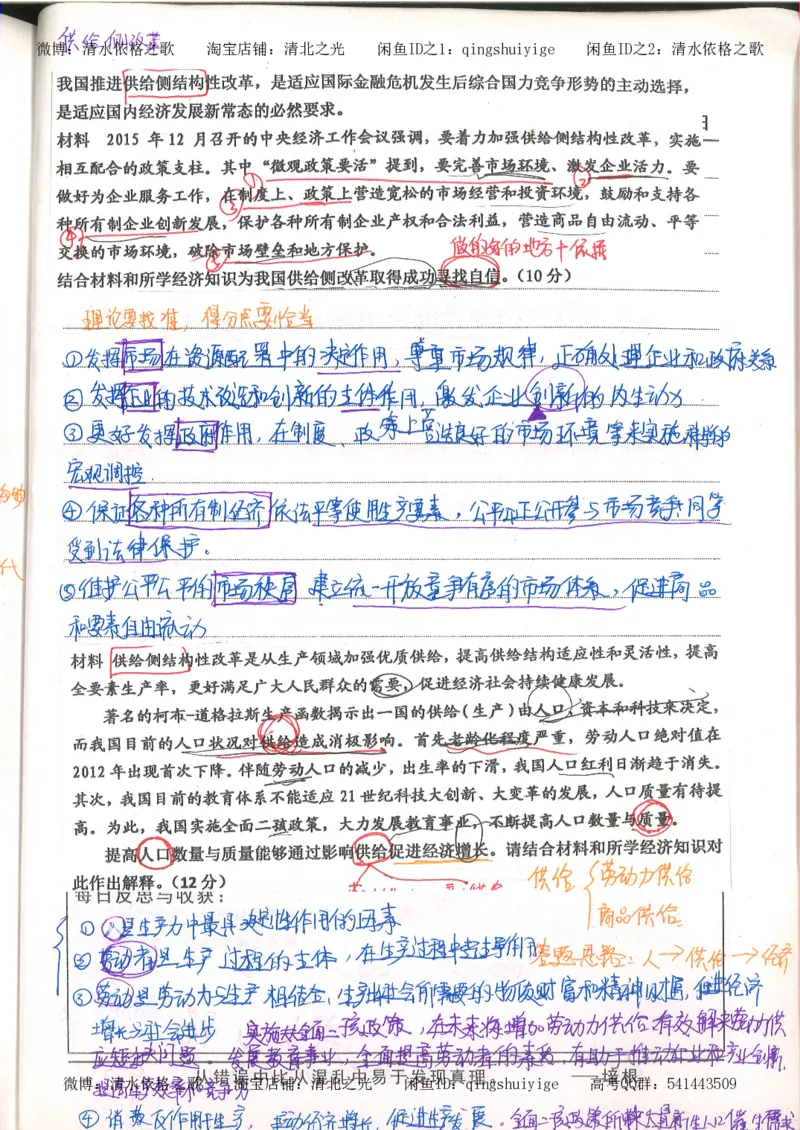 供给侧改革
微博：清水依格之歌 淘宝店铺：清北之光 闲鱼ID之1：qingshuiyige 闲鱼ID之2：清水依格之歌
我国推进供给侧结构性改革，是适应国际金融危机发生后综合国力竞争形势的主动选择，
是适应国内经济发展新常态的必然要求。
材料 2015 年 12 月召开的中央经济工作会议强调，要着力加强供给侧结构性改革，实施
相互配合的政策支柱。其中“微观政策要活”提到，要完善市场环境、激发企业活力。要
做好为企业服务工作，在制度上、政策上营造宽松的市场经营和投资环境，鼓励和支持各
种所有制企业创新发展，保护各种所有制企业产权和合法利益，营造商品自由流动、平等
交换的市场环境，破除市场壁垒和地方保护。
做的好的地方+依据
结合材料和所学经济知识为我国供给侧改革取得成功寻找自信。（10 分）
理论要找准，得分点要恰当
①发挥市场在资源配置中的决定作用，尊重市场规律，正确处理企业和政府关系
②发挥企业的技术改造和创新的主体作用，激发企业创新的内生动力
③更好发挥政府作用，在制度、政策上营造良好的市场环境等来实施科学的
宏观调控.
④保证各种所有制经济依法平等使用生产要素，公平公正公开参与市场竞争同等
受到法律保护。
⑤维护公平公平的市场秩序 建立统一开放竞争有序的市场体系，促进商品
和要素自由流动
材料 供给侧结构性改革是从生产领域加强优质供给，提高供给结构适应性和灵活性，提高
全要素生产率，更好满足广大人民群众的需要，促进经济社会持续健康发展。
著名的柯布-道格拉斯生产函数揭示出一国的供给（生产）由人口、资本和科技来决定，
而我国目前的人口状况对供给造成消极影响。首先老龄化程度严重，劳动人口绝对值在
2012 年出现首次下降。伴随劳动人口的减少，出生率的下滑，我国人口红利日渐趋于消失。
其次，我国目前的教育体系不能适应 21 世纪科技大创新、大变革的发展，人口质量有待提
高。为此，我国实施全面二孩政策，大力发展教育事业，不断提高人口数量与质量。
提高人口数量与质量能够通过影响供给促进经济增长。请结合材料和所学经济知识对
此作出解释。（12 分）
供给 劳动力供给
商品供给
每日反思与收获：
①人是生产力中最具决定性作用的因素
②劳动者是生产过程的主体，在生产过程中起主导作用
答题思路：人→供给→经济
③劳动是劳动力与生产相结合，生产出社会所需要的物质财富和精神财富，促进经济
增长与社会进步 实施全面二孩政策，在未来将增加劳动力供给有效解决劳动力供
应短缺问题。发展教育事业，全面提高劳动者的素质，有助于推动企业和产业创新，
从错误中比从混乱中易于发现真理 培根
微博：清水依格之歌 淘宝店铺：清北之光 闲鱼ID：qingshuiyige 高考QQ群：541443509
④消费反作用于生产，拉动经济增长，促进生产发展。